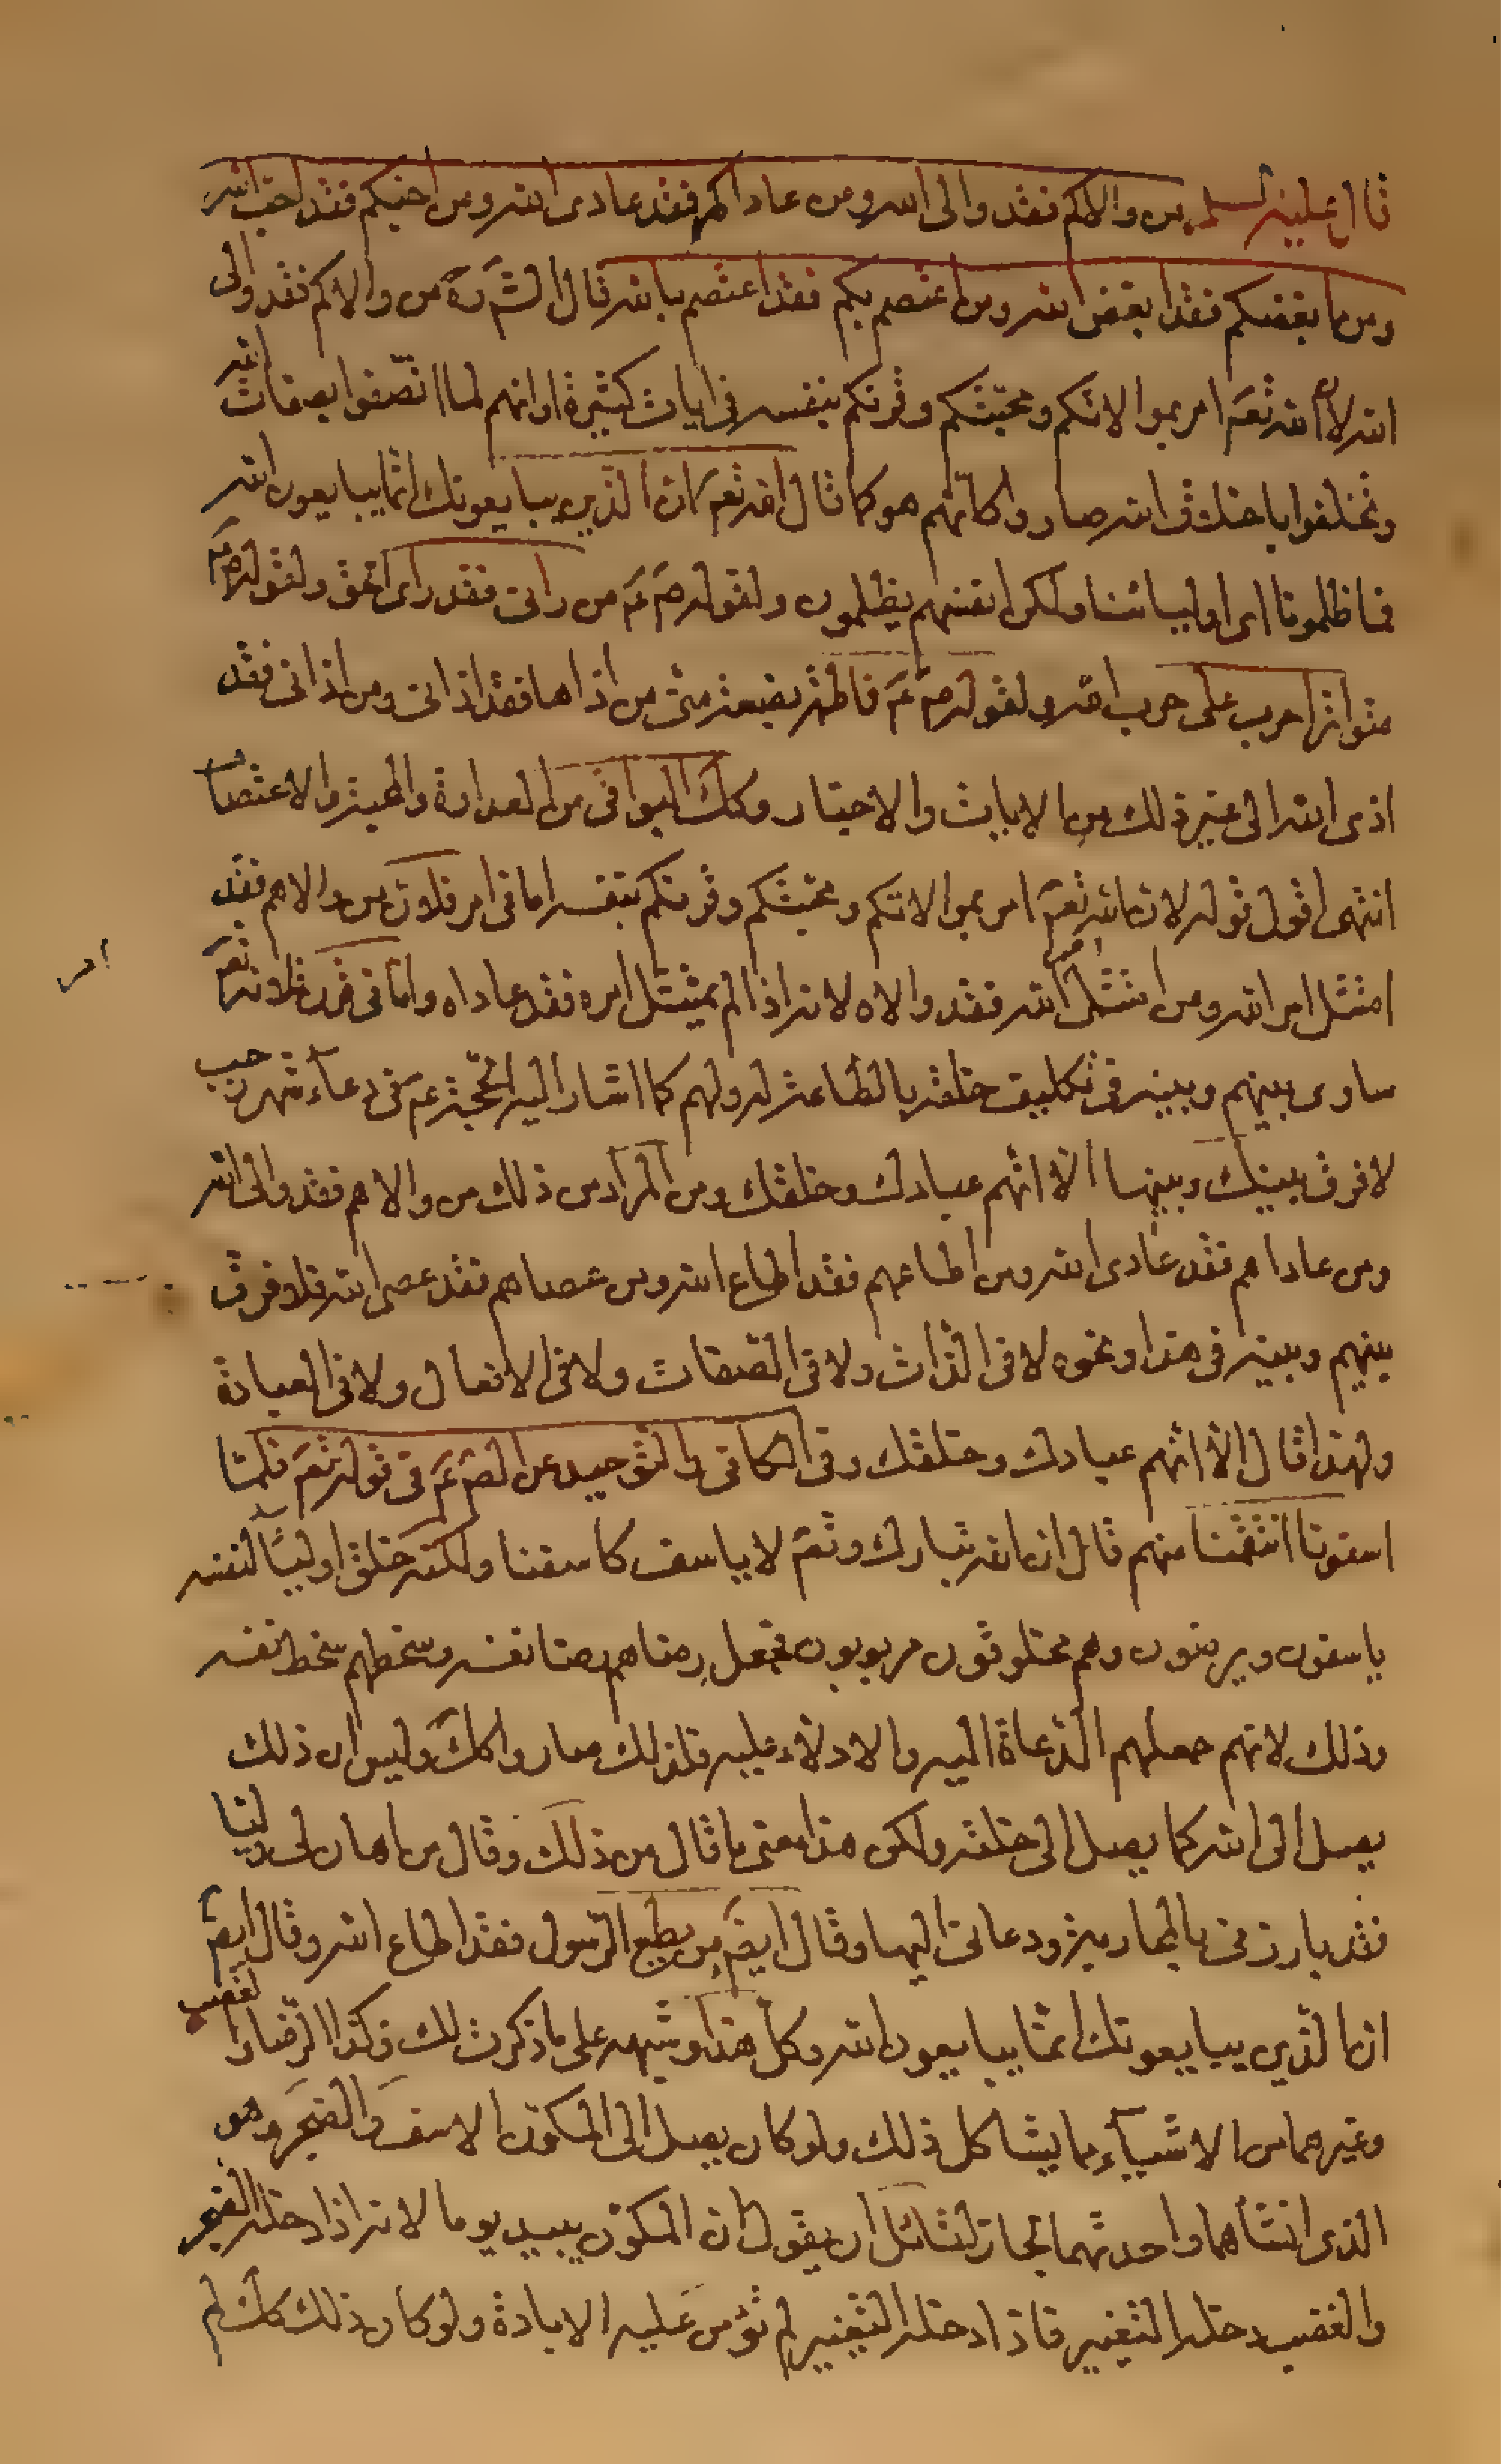 قال عليه السلم من والاكم فقد والى الله ومن عاداكم فقد عادى الله ومن احبكم فقد احب الله
ومن ابغضكم فقد ابغض الله ومن اعتصم بكم فقد اعتصم بالله قال الش ره من والاكم فقد والى
الله لان الله تعم امر بموالاتكم ومحبتكم وقرنكم بنفسه فى ايات كثيرة او انهم لما اتصفوا بصفات الله
وتخلقوا باخلاق الله صاروا كانهم هو كما قال الله تعم ان الذين يبايعونك انما يبايعون الله
فما ظلمونا اى اوليائنا ولكن انفسهم يظلمون ولقوله ص م من رانى فقد راى الحق ولقوله ص م
متواترا حرب على حرب الله ولقوله ص م فاطمة بضعة منى من اذاها فقد اذانى ومن اذانى فقد
اذى الله الى غير ذلك من الايات والاخبار وكك البواقى من العداوة والمحبة والاعتصام
انتهى اقول قوله لان الله تعم امر بموالاتكم ومحبتكم وقرنكم بنفسه اما فى امر فلان من والاهم فقد
امتثل امر الله ومن امتثل امر الله فقد والاه لانه اذا لم يمتثل امره فقد عاداه واما فى قرن فلانه تعم
ساوى بينهم وبينه فى تكليف خلقه بالطاعة له ولهم كما اشار اليه الحجة عم فى دعاء شهر رجب
لا فرق بينك وبينها الا انهم عبادك وخلقك ومن المراد من ذلك من والاهم فقد والى الله
ومن عاداهم فقد عادى الله ومن اطاعهم فقد اطاع الله ومن عصاهم فقد عصى الله فلا فرق
بينهم وبينه فى هذا ونحوه لا فى الذات ولا فى الصفات ولا فى الافعال ولا فى العبادة
ولهذا قال الا انهم عبادك وخلقك وفى الكافى والتوحيد عن الص عم فى قوله تعم فلما
اسفونا انتقمنا منهم قال ان الله تبارك وتعم لا ياسف كاسفنا ولكنه خلق اولياء لنفسه
ياسفون ويرضون وهم مخلوقون مربوبون فجعل رضاهم رضا نفسه وسخطهم سخط نفسه
وذلك لانهم جعلهم الدعاة اليه والادلاء عليه فلذلك صاروا كك وليس ان ذلك
يصل الى الله كما يصل الى خلقه ولكن هذا معنى ما قال من ذلك وقال من اهان لى وليا
فقد بارزنى بالمحاربة ودعانى اليها وقال ايضم من يطع الرسول فقد اطاع الله وقال ايضم
ان الذين يبايعونك انما يبايعون الله وكل هذا وشبهه على ما ذكرت لك وكذا الرضا والغضب
وغيرهما من الاشياء مما يشاكل ذلك ولو كان يصل الى المكون الاسف والضجر وهو
الذى انشاهما واحدثهما لجاز لقائل ان يقول ان المكون يبيد يوما لانه اذا دخله الضجر
والغضب دخله التغيير فاذا دخله التغيير لم تؤمن عليه الابادة ولو كان ذلك كك لم